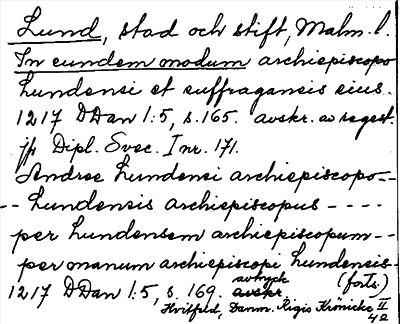 Lund, stad och stift, Malm. l.
In eundem modum archiepiscopo
Lundensi et suffraganeis eius.
1217 DDan 1:5, s. 165. avskr. av regest.
jfr Dipl. Svec. I nr. 171.
Andree Lundensi archiepiscopo --
-- Lundensis archiepiscopus ----
per Lundensem archiepiscopum --
per manum archiepiscopi Lundensis --
1217 DDan 1:5, s. 169. avskr avtryck (forts.)
Hvitfeld, Danm. Rigis Krönicke II
42